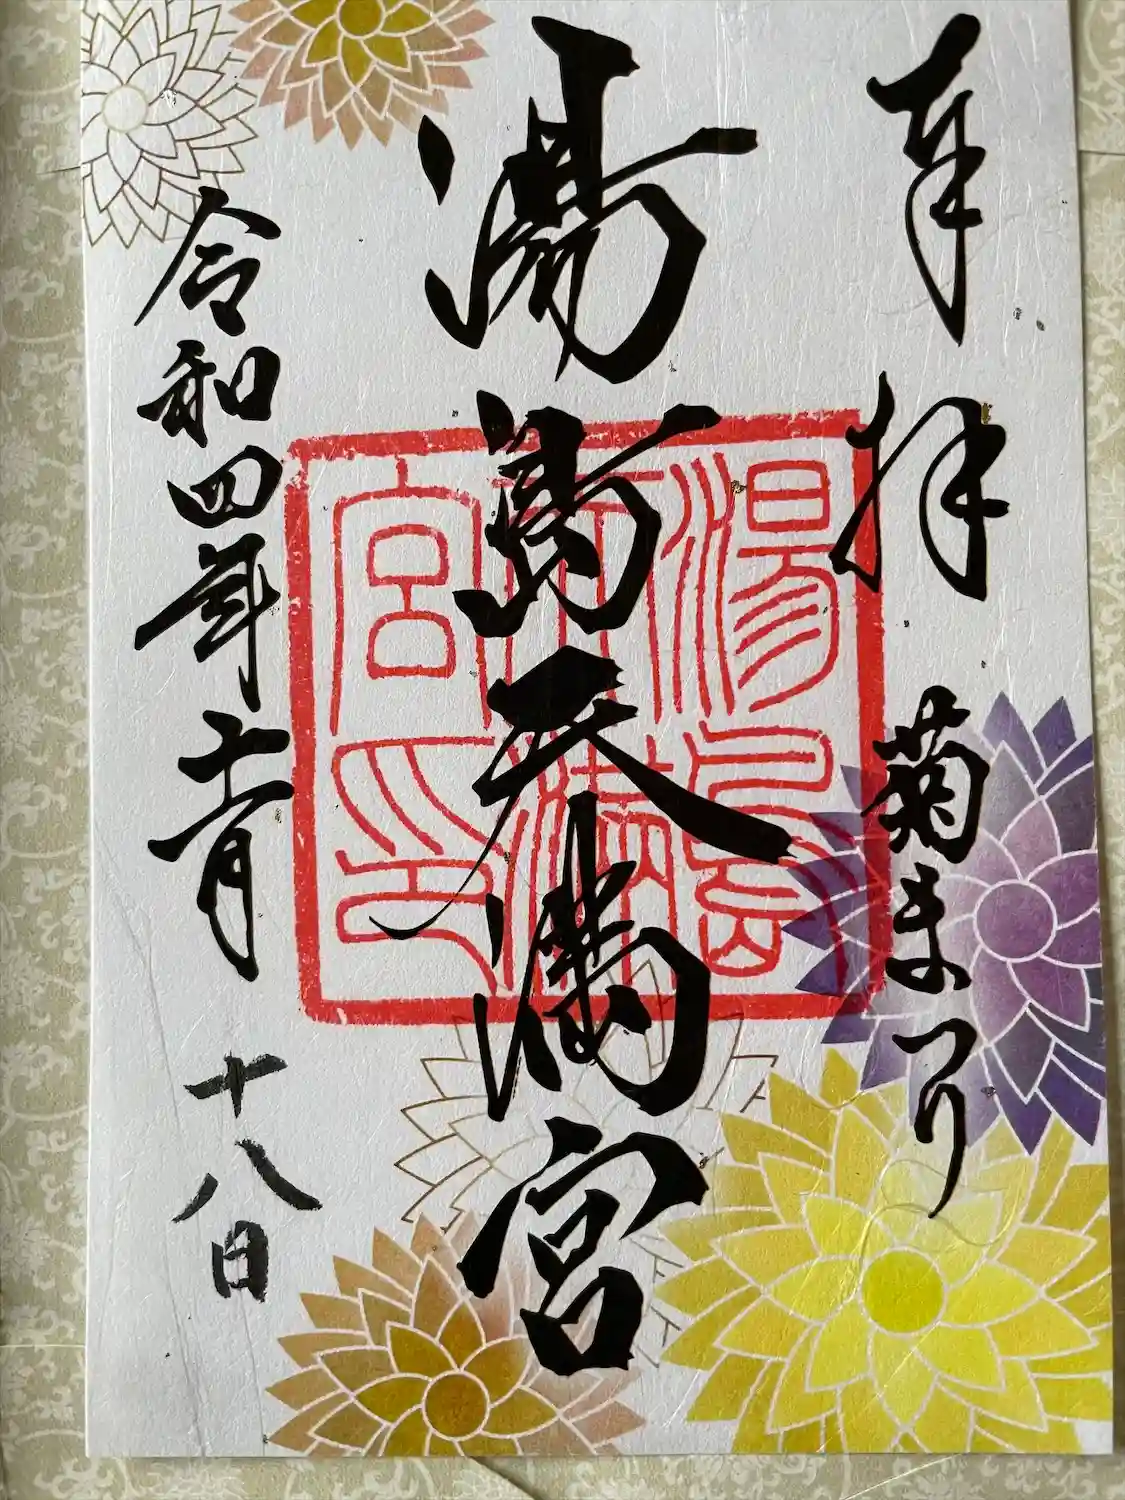 奉拝 菊まつり
湯島天満宮
令和四年十一月十八日
湯島
天満
宮印